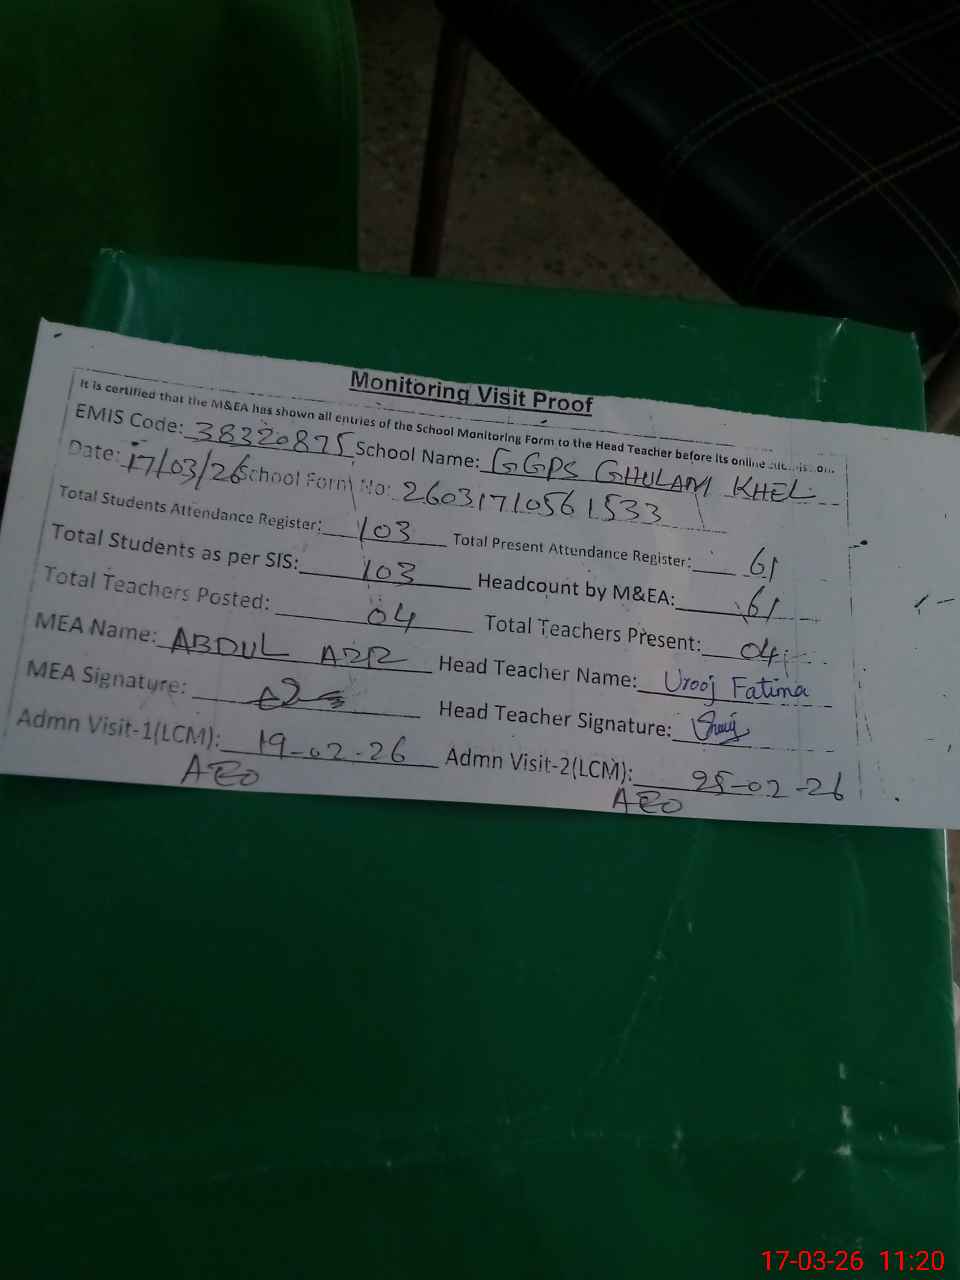 Monitoring Visit Proof
It is certified that the M&EA has shown all entries of the School Monitoring Form to the Head Teacher before its online
EMIS Code: 38320875 School Name: GGPS GHULAM KHEL
Date: 17/03/26 School Form No: 26031710561533
Total Students Attendance Register: 103 Total Present Attendance Register: 61
Total Students as per SIS: 103 Headcount by M&EA: 61
Total Teachers Posted: 04 Total Teachers Present: 04
MEA Name: ABDUL Head Teacher Name: Urooj Fatima
MEA Signature: Head Teacher Signature:
Admn Visit-1(LCM): 19-02-26 Admn Visit-2(LCM): 25-02-26
AEO AEO
17-03-26 11:20